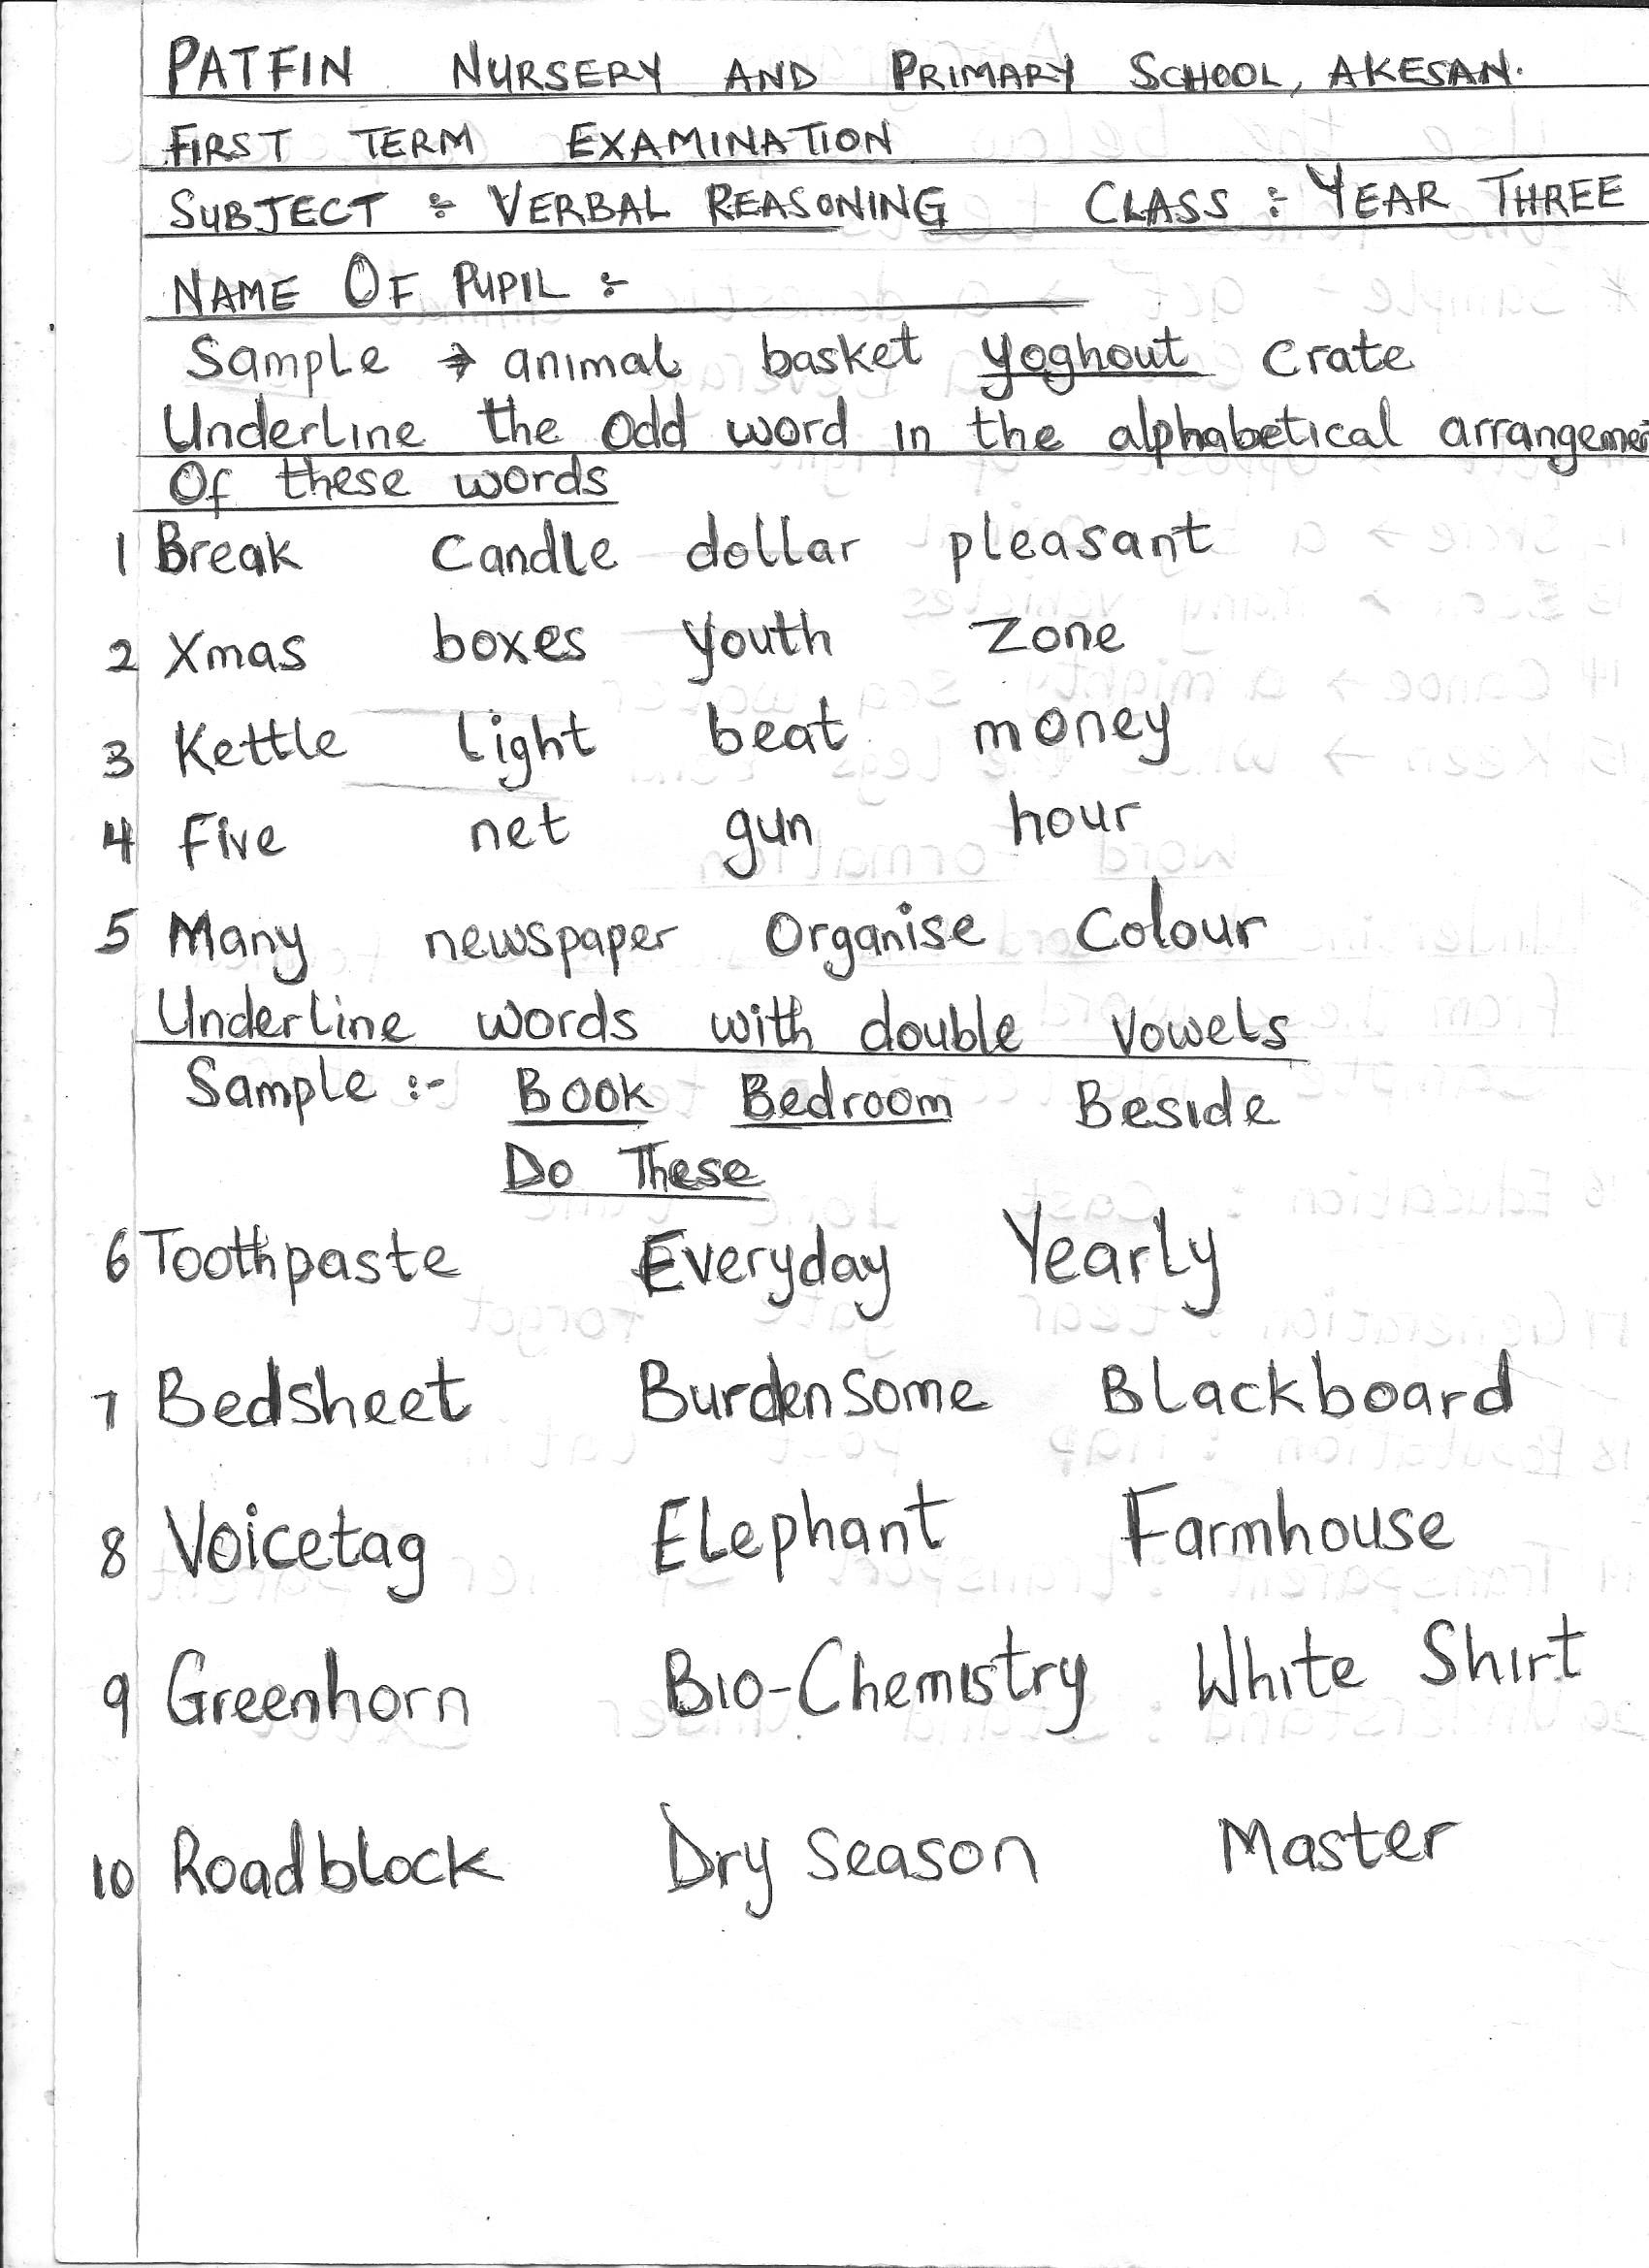 PATFIN NURSERY AND PRIMARY SCHOOL, AKESAN.
FIRST TERM EXAMINATION
SUBJECT :- VERBAL REASONING CLASS :- YEAR THREE
NAME OF PUPIL :-
Sample → animal basket yoghout crate
Underline the odd word in the alphabetical arrangemen
Of these words
1 Break candle dollar pleasant
2 Xmas boxes youth zone
3 Kettle light beat money
4 Five net gun hour
5 Many newspaper organise colour
Underline words with double vowels
Sample :- Book Bedroom Beside
Do These
6 Toothpaste Everyday Yearly
7 Bedsheet Burdensome Blackboard
8 Voicetag Elephant Farmhouse
9 Greenhorn Bio-Chemistry White Shirt
10 Roadblock Dry season Master